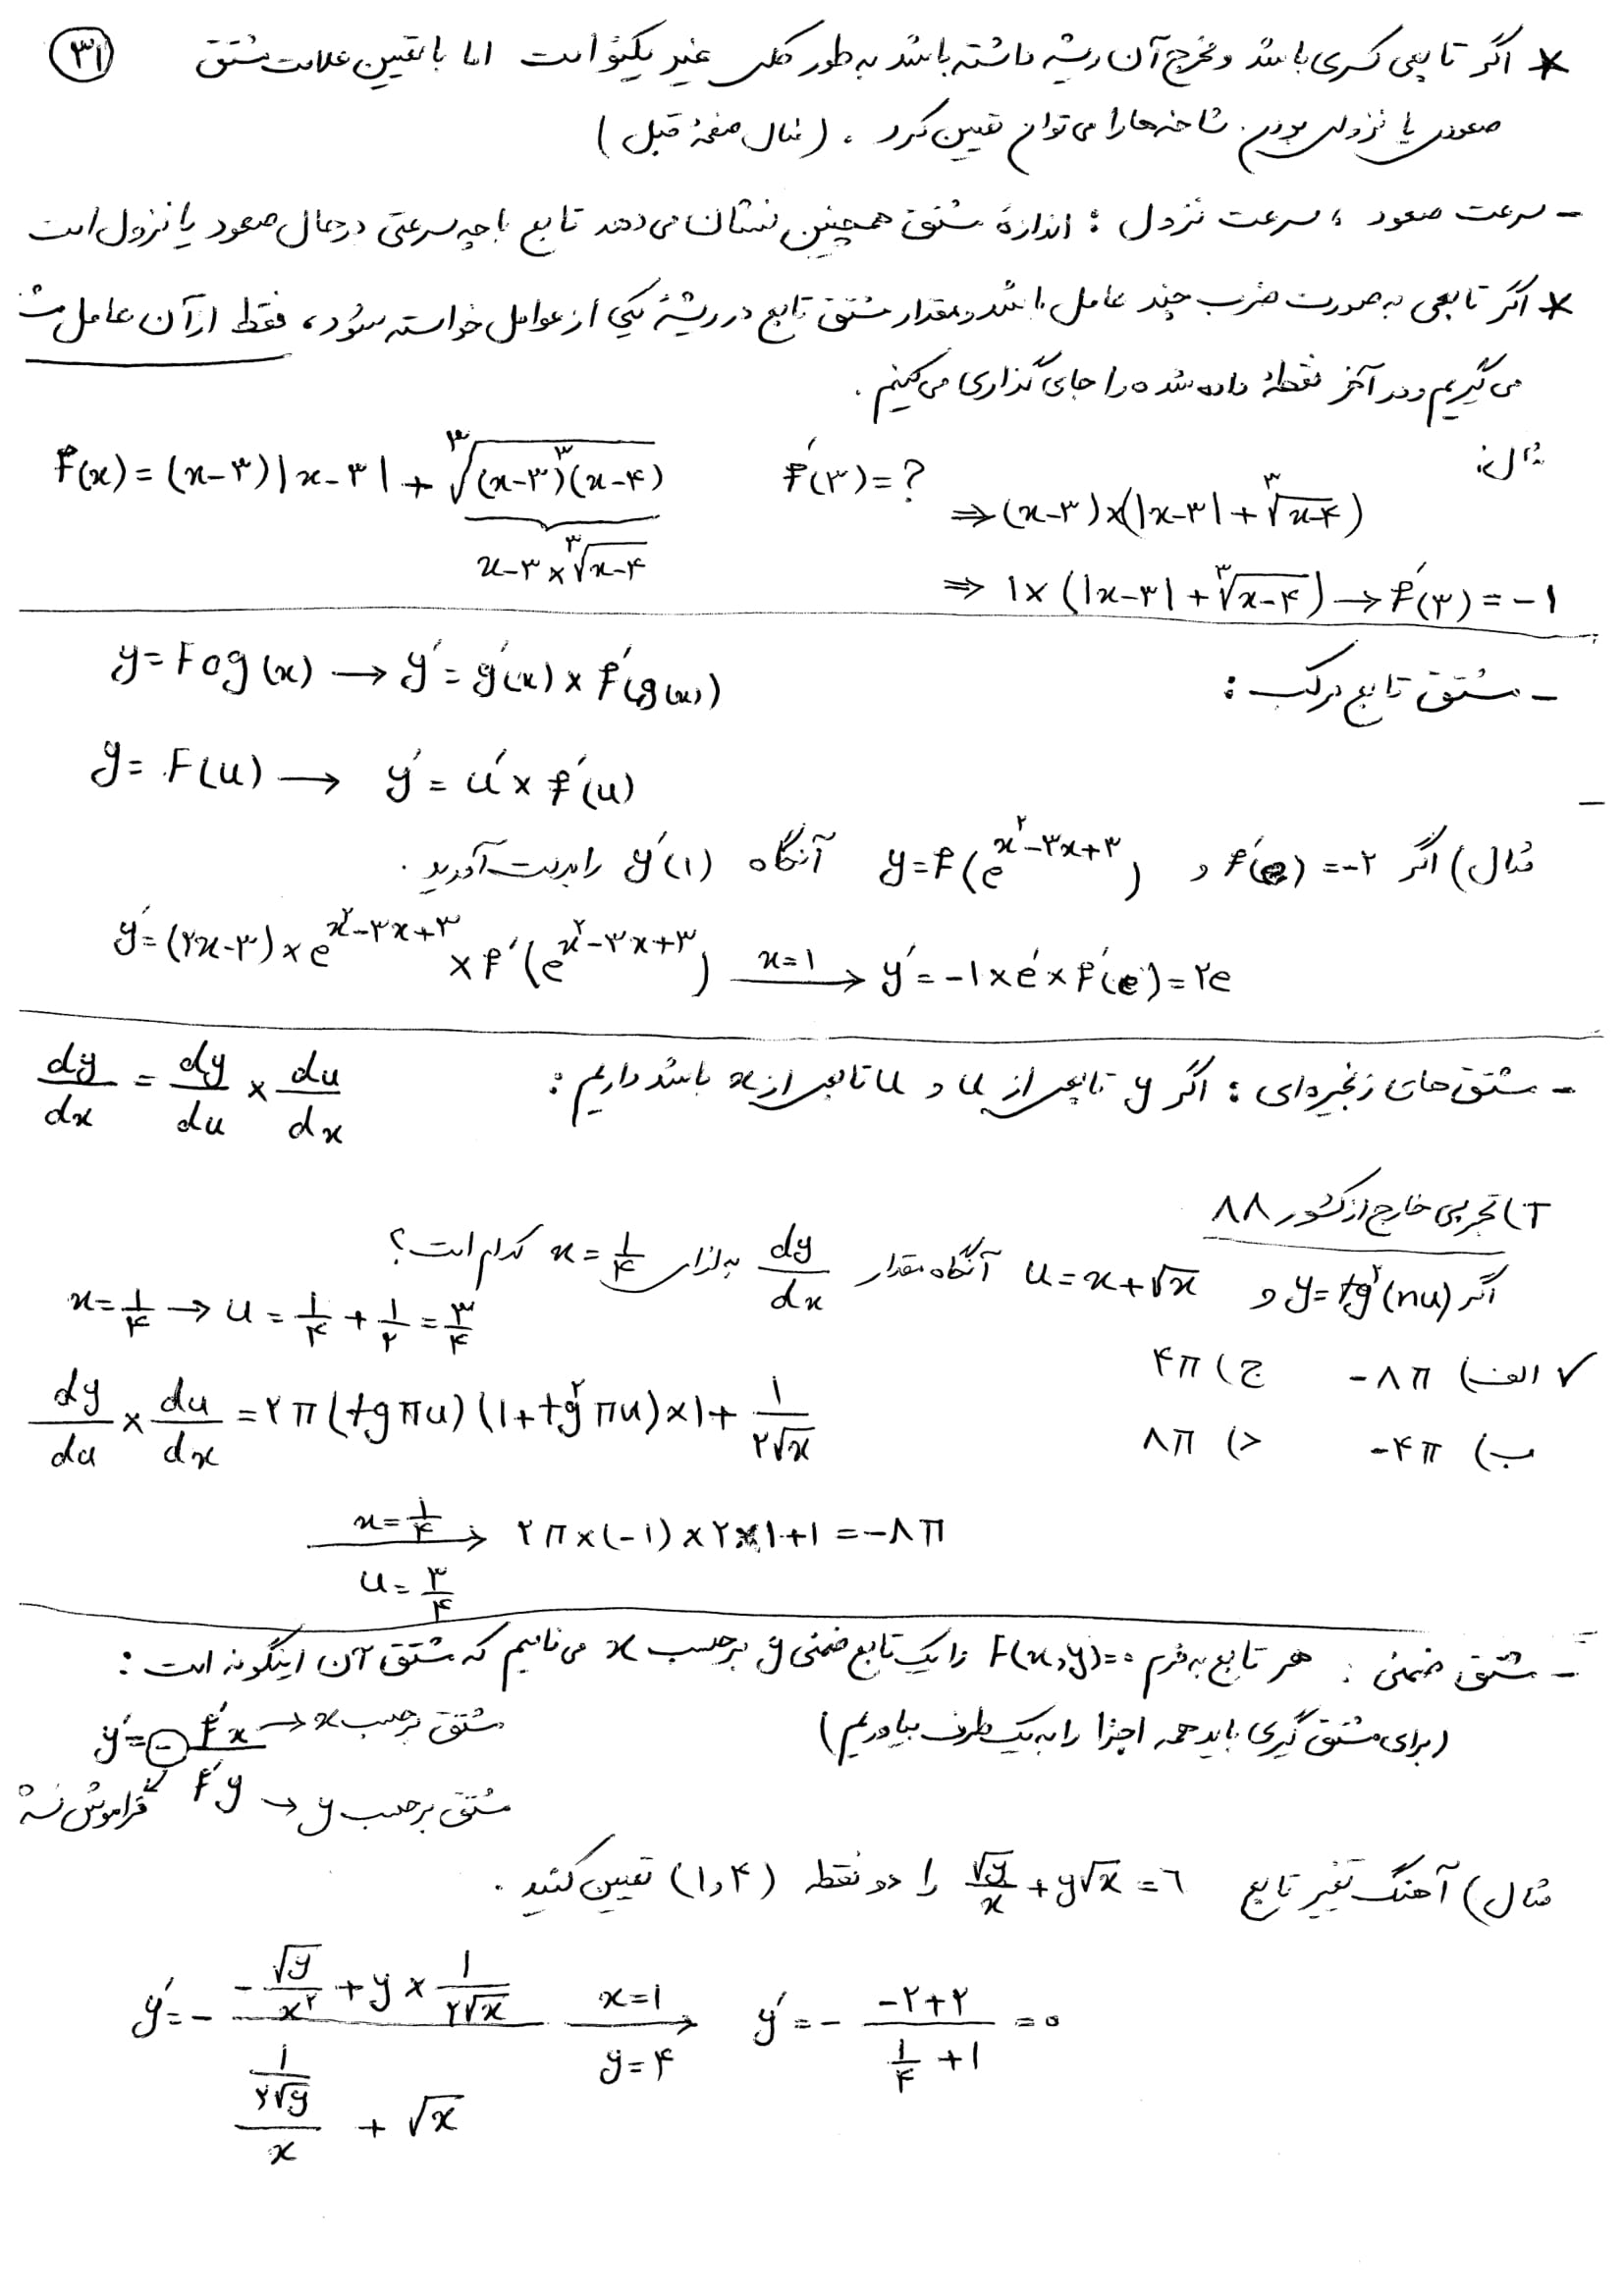 ۳۱
* اگر تابعی کسری باشد و مخرج آن ریشه داشته باشد به طور کلی غیر یکنوا است اما با تعیین علامت مشتق
صعودی یا نزولی بودن شاخه‌ها را می‌توان تعیین کرد . (مثال صفحهٔ قبل)
- سرعت صعود ، سرعت نزول : اندازهٔ مشتق همچنین نشان می‌دهد تابع با چه سرعتی در حال صعود یا نزول است
* اگر تابعی به صورت ضرب چند عامل باشد و مقدار مشتق تابع در ریشهٔ یکی از عوامل خواسته شود، فقط از آن عامل مشـ
می‌گیریم و در آخر نقطهٔ داده شده را جای گذاری می‌کنیم .
مثال:
f(x) = (x-۳)|x-۳| + ∛((x-۳)^۳(x-۴)) f'(۳) = ?
x-۳ × ∛(x-۴)
⇒ (x-۳)×(|x-۳| + ∛(x-۴))
⇒ ۱×(|x-۳| + ∛(x-۴)) → f'(۳) = -۱
- مشتق تابع مرکب :
y = Fog(x) → y' = g'(x) × f'(g(x))
y = F(u) → y' = u' × f'(u)
مثال) اگر f'(e) = -۲ و y = f(e^(x^۲-۳x+۳)) آنگاه y'(۱) را بدست آورید .
y' = (۲x-۳) × e^(x^۲-۳x+۳) × f'(e^(x^۲-۳x+۳)) —x=۱→ y' = -۱ × e^۱ × f'(e) = ۲e
- مشتق های زنجیره‌ای : اگر y تابعی از u و u تابعی از x باشد داریم : dy/dx = dy/du × du/dx
T) تجربی خارج از کشور ۸۸
اگر y = tg^۲(πu) و u = x+√x آنگاه مقدار dy/dx به ازای x = ۱/۴ کدام است؟
x = ۱/۴ → u = ۱/۴ + ۱/۲ = ۳/۴
✓ الف) -۸π ج) ۴π
ب) -۴π د) ۸π
dy/du × du/dx = ۲π(tg πu)(۱+tg^۲ πu)×۱ + ۱/(۲√x)
—x=۱/۴, u=۳/۴→ ۲π×(-۱)×۲×۱+۱ = -۸π
- مشتق ضمنی : هر تابع به فرم F(x,y)=۰ را یک تابع ضمنی y برحسب x می‌نامیم که مشتق آن اینگونه است :
(برای مشتق گیری باید همه اجزا را به یک طرف بیاوریم)
y' = - f'x / f'y
مشتق برحسب x ←
مشتق برحسب y ←
فراموش نشه
مثال) آهنگ تغییر تابع √y/x + y√x = ۶ را در نقطه (۱,۴) تعیین کنید .
y' = - (-√y/x^۲ + y × ۱/(۲√x)) / ((۱/(۲√y))/x + √x) —x=۱, y=۴→ y' = - (-۲+۲)/(۱/۴ + ۱) = ۰